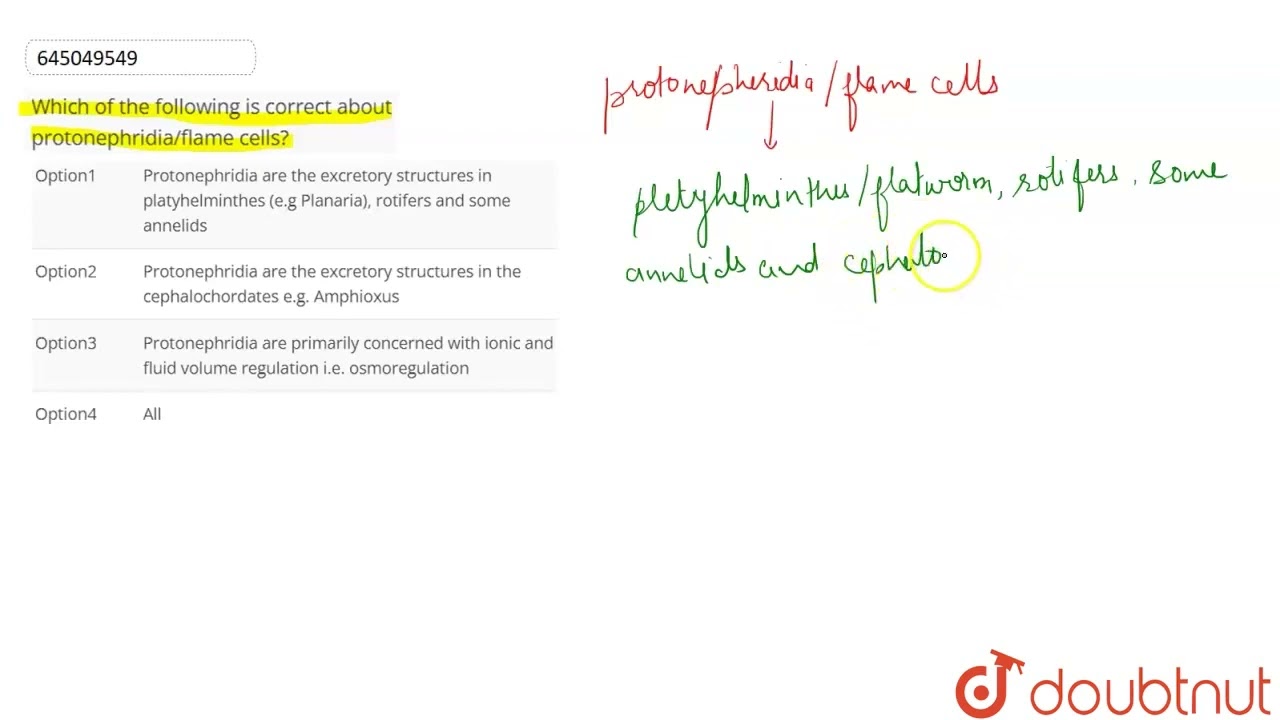 645049549
Which of the following is correct about
protonephridia/flame cells?
Option1 Protonephridia are the excretory structures in
platyhelminthes (e.g Planaria), rotifers and some
annelids
Option2 Protonephridia are the excretory structures in the
cephalochordates e.g. Amphioxus
Option3 Protonephridia are primarily concerned with ionic and
fluid volume regulation i.e. osmoregulation
Option4 All
protonepheridia/flame cells
pletyhelminthes/flatworm, rotifers, some
annelids and cephalo
doubtnut